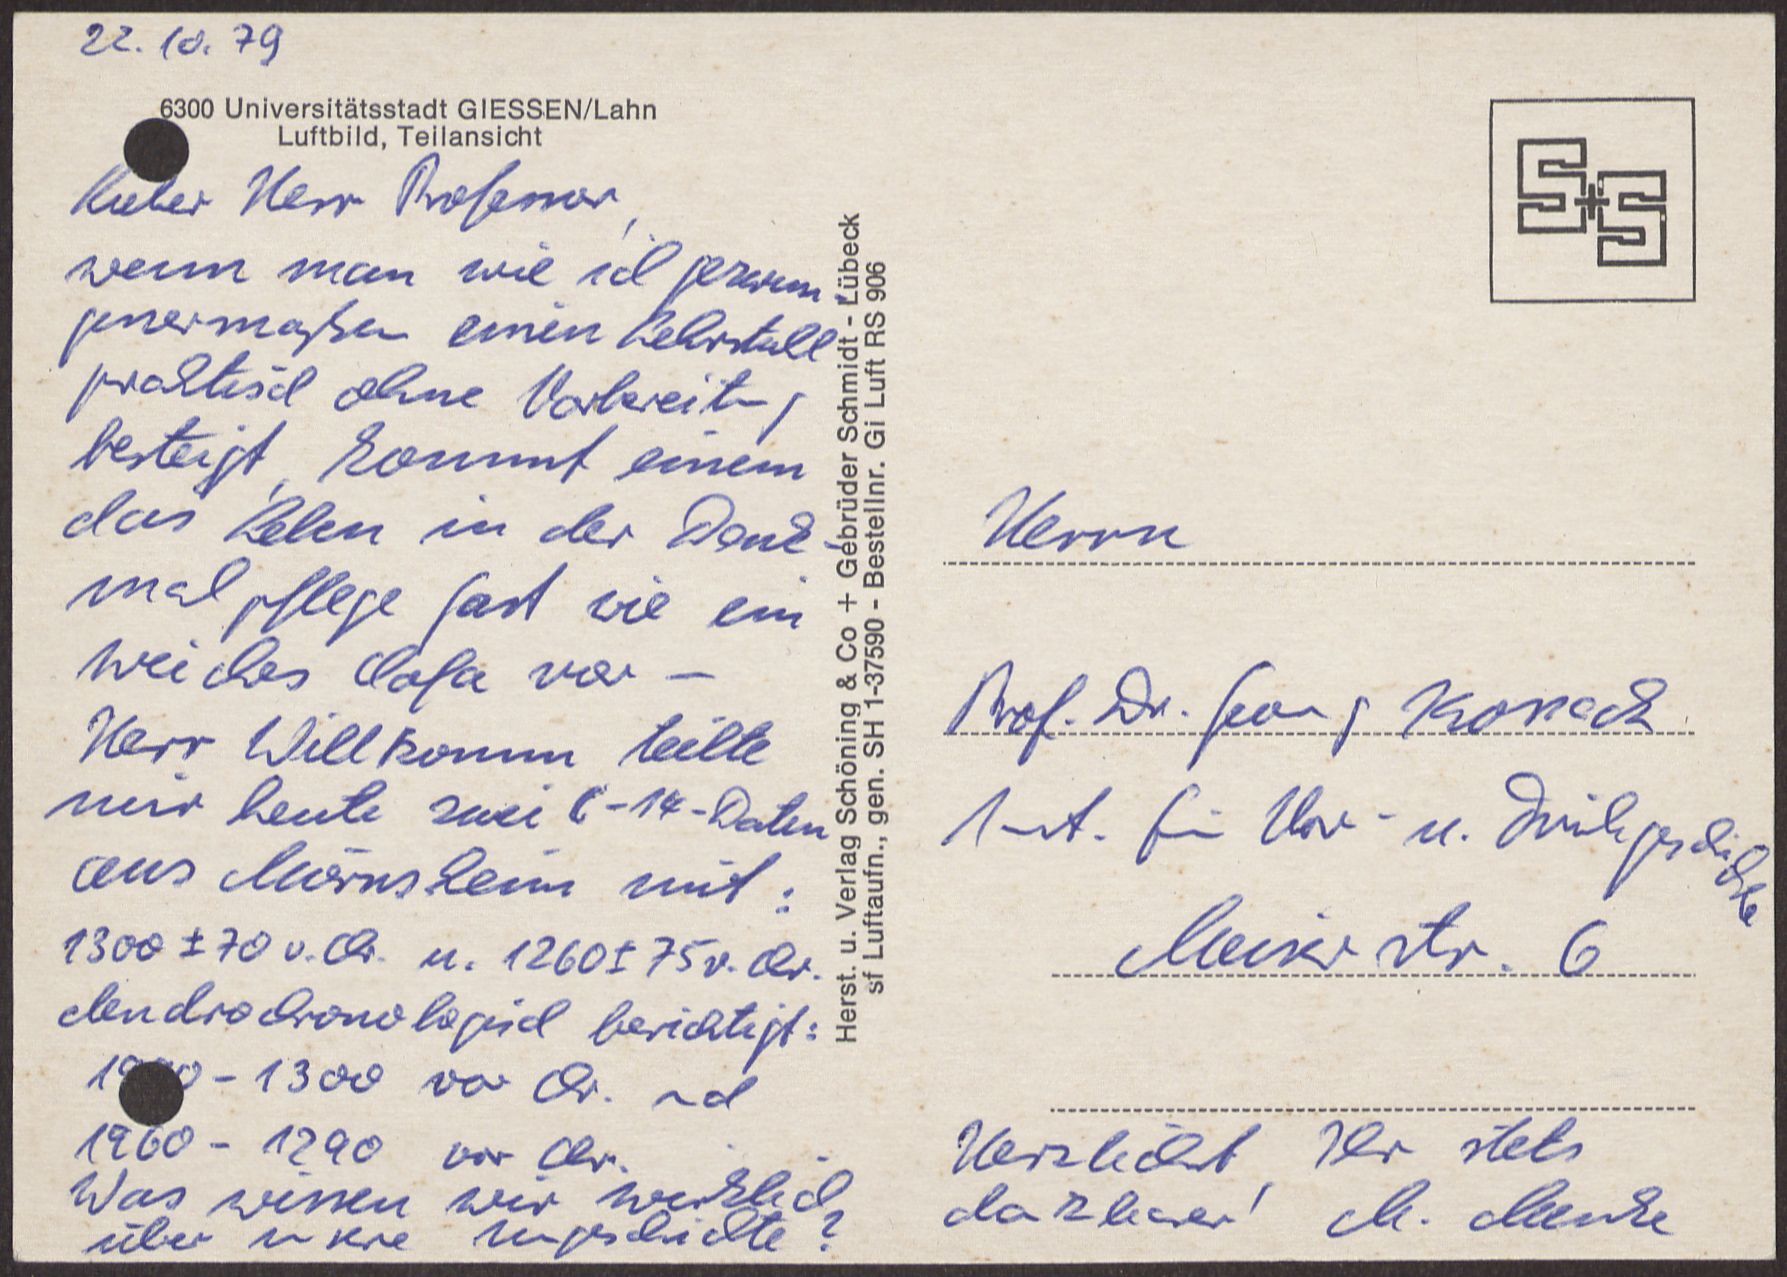 22.10.79
6300 Universitätsstadt GIESSEN/Lahn
Luftbild, Teilansicht
Lieber Herr Professor,
wenn man wie ich gezwun-
genermaßen einen Lehrstuhl
praktisch ohne Vorbereitung
besteigt, kommt einem
das Leben in der Denk-
malpflege fast wie ein
weiches Sofa vor –
Herr Willkomm teilte
mir heute zwei C-14-Daten
aus Mörnsheim mit:
1300 ± 70 v. Chr. u. 1260 ± 75 v. Chr.
dendrochronologisch berichtigt:
0 – 1300 vor Chr. und
1960 – 1290 vor Chr.
Was wissen wir wirklich
über unsere Urgeschichte?
Herst. u. Verlag Schöning & Co + Gebrüder Schmidt - Lübeck
sf Luftaufn., gen. SH 1-37590 - Bestellnr. Gi Luft RS 906
S+S
Herrn
Prof. Dr. Georg Kossack
Inst. für Vor- u. Frühgeschichte
Meiserstr. 6
Herzlichst, Ihr stets
dankbarer! M. Menke